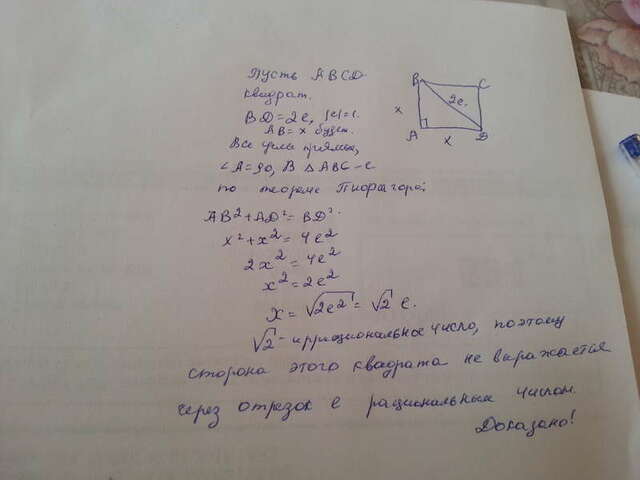 Пусть ABCD
квадрат.
BD=2e, |e|=1.
AB=x будет.
Все углы прямые,
∠A=90, В △ABC-е
по теореме Пифагора:
AB²+AD²=BD².
x²+x²=4e²
2x²=4e²
x²=2e²
x=√2e²=√2 e.
√2-иррациональное число, поэтому
сторона этого квадрата не выражается
через отрезок e рациональным числом.
Доказано!
B
C
2e.
x
A
D
x